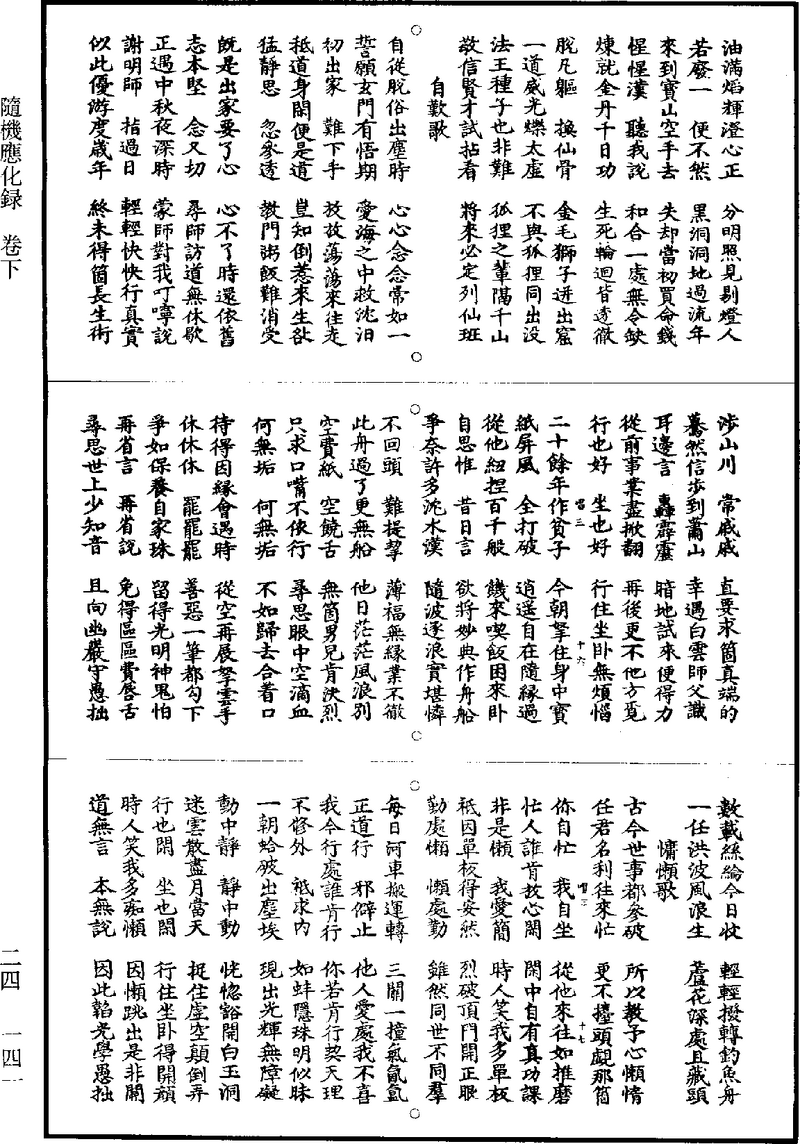 隨機應化録　卷下
二四　一四一
油滿焰輝澄心正　分明照見剔燈人
若廢一　便不然　黑洞洞地過流年
來到寶山空手去　失却當初買命錢
惺惺漢　聽我說　和合一處無令缺
煉就金丹千日功　生死輪迴皆透徹
脫凡軀　換仙骨　金毛獅子迸出窟
一道威光爍太虛　不與狐狸同出没
法王種子也非難　狐狸之輩隔千山
敬信賢才試拈看　將來必定列仙班
自歎歌
自從脫俗出塵時　心心念念常如一
誓願玄門有悟期　愛海之中救沈汨
初出家　難下手　故故蕩蕩來往走
秪道身閑便是道　豈知倒惹來生咎
猛靜思　忽參透　教門粥飯難消受
既是出家要了心　心不了時還依舊
志本堅　念又切　尋師訪道無休歇
正遇中秋夜深時　蒙師對我叮嚀說
謝明師　指過日　輕輕快快行真實
似此優游度歲年　終未得箇長生術
涉山川　常戚戚　直要求箇真端的
驀然信步到蕭山　幸遇白雲師父識
耳邊言　轟霹靂　暗地試來便得力
從前事業盡掀翻　再後更不他方覓
行也好　坐也好　行住坐卧無煩惱
二十餘年作貧子　今朝拏住身中寶
紙屏風　全打破　逍遥自在隨緣過
從他紐捏百千般　饑來喫飯困來卧
自思惟　昔日言　欲將妙典作舟船
爭奈許多沱水漢　隨波逐浪實堪憐
不回頭　難提挈　薄福無緣業不徹
此舟過了更無船　他日茫茫風浪別
空費紙　空饒舌　無箇男兒肯決烈
只求口嘴不依行　尋思眼中空滴血
何無垢　何無垢　不如歸去合着口
待得因緣會遇時　從空再展拏雲手
休休休　罷罷罷　善惡一筆都勾下
爭如保養自家珠　留得光明神鬼怕
再省言　再省說　免得區區費唇舌
尋思世上少知音　且向幽巖守愚拙
數載絲綸今日收　輕輕撥轉釣魚舟
一任洪波風浪生　蘆花深處且藏頭
慵懶歌
古今世事都參破　所以教予心懶惰
任君名利往來忙　更不擡頭覷那箇
你自忙　我自坐　從他來往如推磨
忙人誰肯放心閑　閑中自有真功課
非是懶　我愛簡　時人笑我多單板
秪因單板得安然　烈破頂門開正眼
勤處懶　懶處勤　雖然同世不同羣
每日河車搬運轉　三關一撞氣氤氲
正道行　邪僻止　他人愛處我不喜
我今行處誰肯行　你若肯行契天理
不修外　秪求内　如蚌隱珠明似昧
一朝蛤破出塵埃　現出光輝無障礙
動中靜　靜中動　恍惚豁開白玉洞
迷雲散盡月當天　捉住虚空顛倒弄
行也閑　坐也閑　行住坐卧得開顏
時人笑我多痴懶　因懶跳出是非關
道無言　本無說　因此韜光學愚拙
唱三　十六
唱三　十七